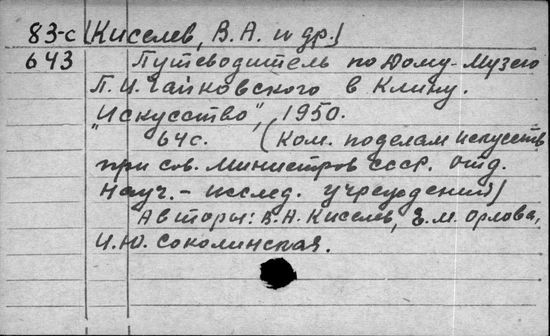 83-с (Киселев, В.А. и др.)
643 Путеводитель по Дому-Музею
П.И. Чайковского в Клину.
"Искусство", 1950.
64 с. (Ком. по делам искусств
при Сов. Министров СССР. Отд.
Науч.-исслед. учреждений)
Авторы: В.А. Киселев, Е.М. Орлова,
И.Ю. Соколинская.